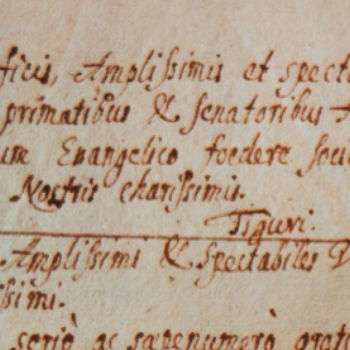 ficis, Amplissimis et spect
primatibus & senatoribus
um Euangelico foedere soci
Nostris charissimis.
Tiguri.
Amplissimi & spectabiles V
ssimi.
seriò ac saepenumerò grat